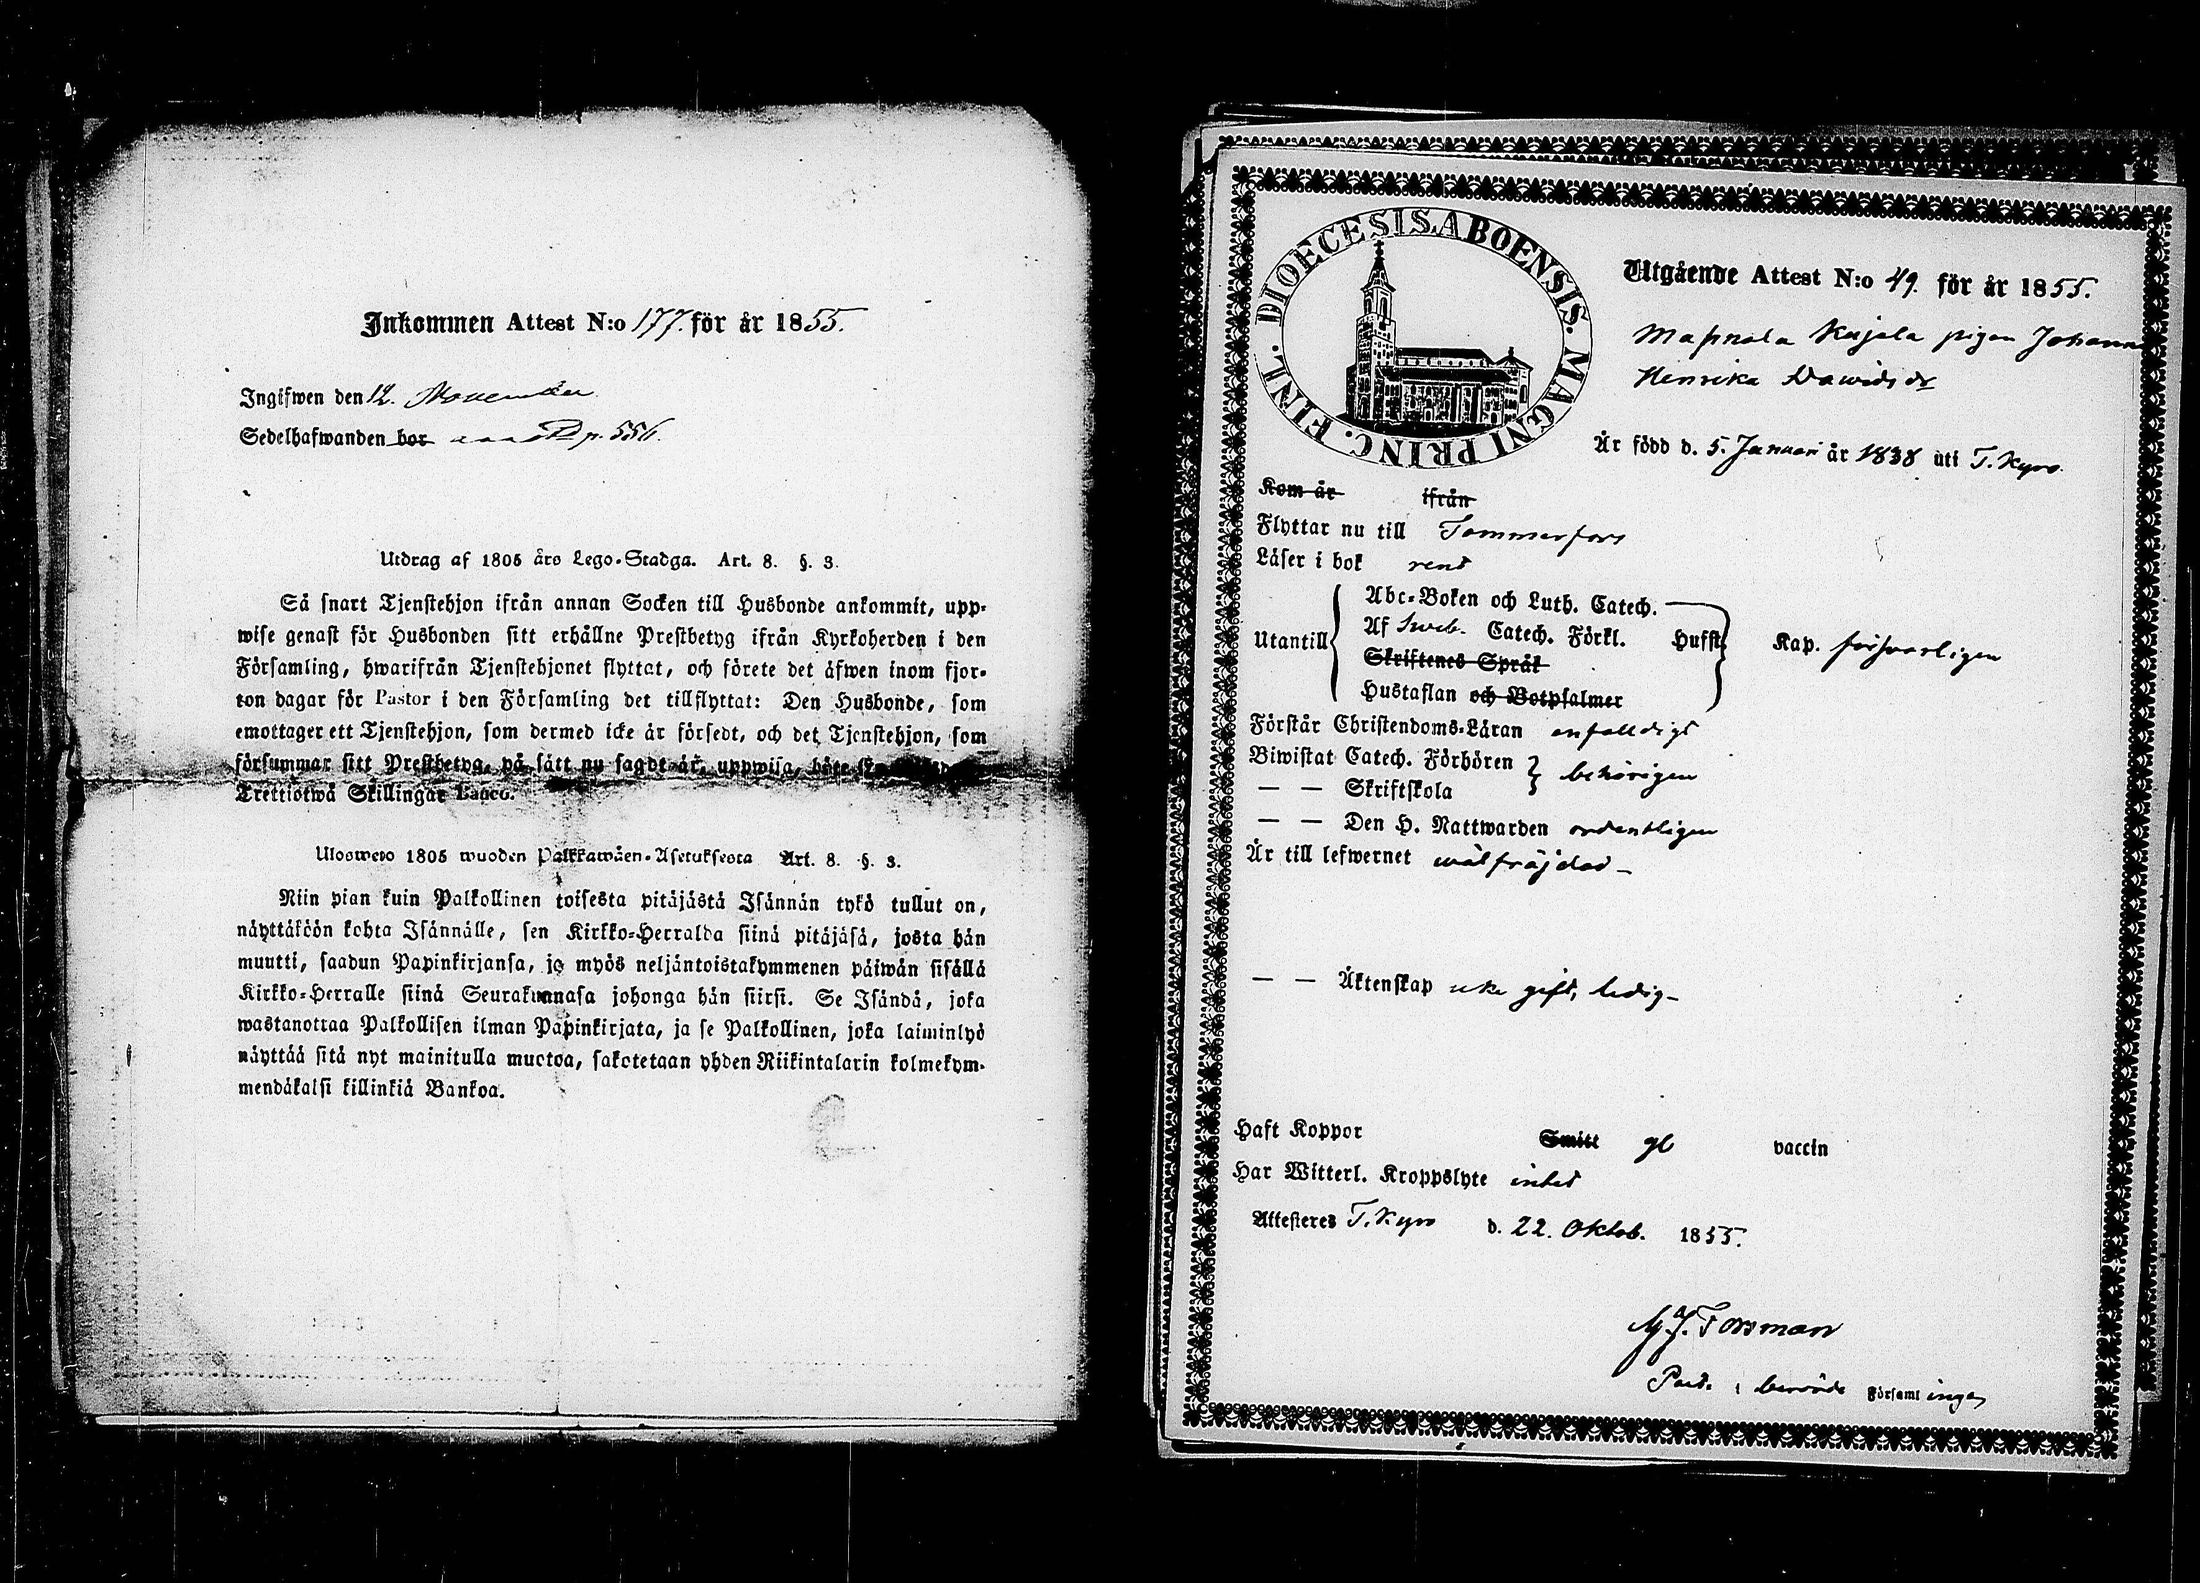 Inkommen Attest N:o 177. för år 1855.
Ingifwen den 12. November
Sedelhafwanden bor p. 556.
Utdrag af 1805 års Lego-Stadga. Art. 8. §. 3.
Så snart Tjenstehjon ifrån annan Socken till Husbonde ankommit, upp-
wise genast för Husbonden sitt erhållne Prestbetyg ifrån Kyrkoherden i den
Församling, hwarifrån Tjenstehjonet flyttat, och förete det äfwen inom fjor-
ton dagar för Pastor i den Församling det tillflyttat: Den Husbonde, som
emottager ett Tjenstehjon, som dermed icke är försedt, och det Tjenstehjon, som
försummar sitt Prestbetyg, på sätt nu sagdt är, uppwisa, böte
Trettiotwå Skillingar Banco.
Ulosweto 1805 wuoden Palkkawäen-Asetuksesta Art. 8. §. 3.
Niin pian kuin Palkollinen toisesta pitäjästä Isännän tykö tullut on,
näyttäköön kohta Isännälle, sen Kirkko-Herralda siinä pitäjäsä, josta hän
muutti, saadun Papinkirjansa, ja myös neljäntoistakymmenen päiwän sisällä
Kirkko-Herralle siinä Seurakunnasa johonga hän siirsi. Se Isändä, joka
wastanottaa Palkollisen ilman Papinkirjata, ja se Palkollinen, joka laiminlyö
näyttää sitä nyt mainitulla muotoa, sakotetaan yhden Riikintalarin kolmekym-
mendäkaksi killinkiä Bankoa.
DIOECESIS. ABOENSIS. MAGNI PRINC. FINL.
Utgående Attest N:o 49. för år 1855.
Kujala pigan Johanna
Henrika Davidsdr
Är född d. 5. Januari år 1838 uti T. Kyro.
Kom år ifrån
Flyttar nu till Tammerfors
Läser i bok rent
Utantill
Abc-Boken och Luth. Catech.
Af Sweb. Catech. Förkl. Husst. Kap. försvarligen
Skriftenes Språk
Hustaflan och Botpsalmer
Förstår Christendoms-Läran enfaldigt
Biwistat Catech. Förhören
— — Skriftskola behörigen
— — Den H. Nattwarden ordentligen
Är till lefwernet wälfräjdad —
— — Äktenskap icke gift, ledig —
Haft Koppor Smitt gl vaccin
Har Witterl. Kroppslyte intet
Attesteras T. Kyro d. 22. Oktob. 1855.
Forsman
Past. i berörde Församlingen